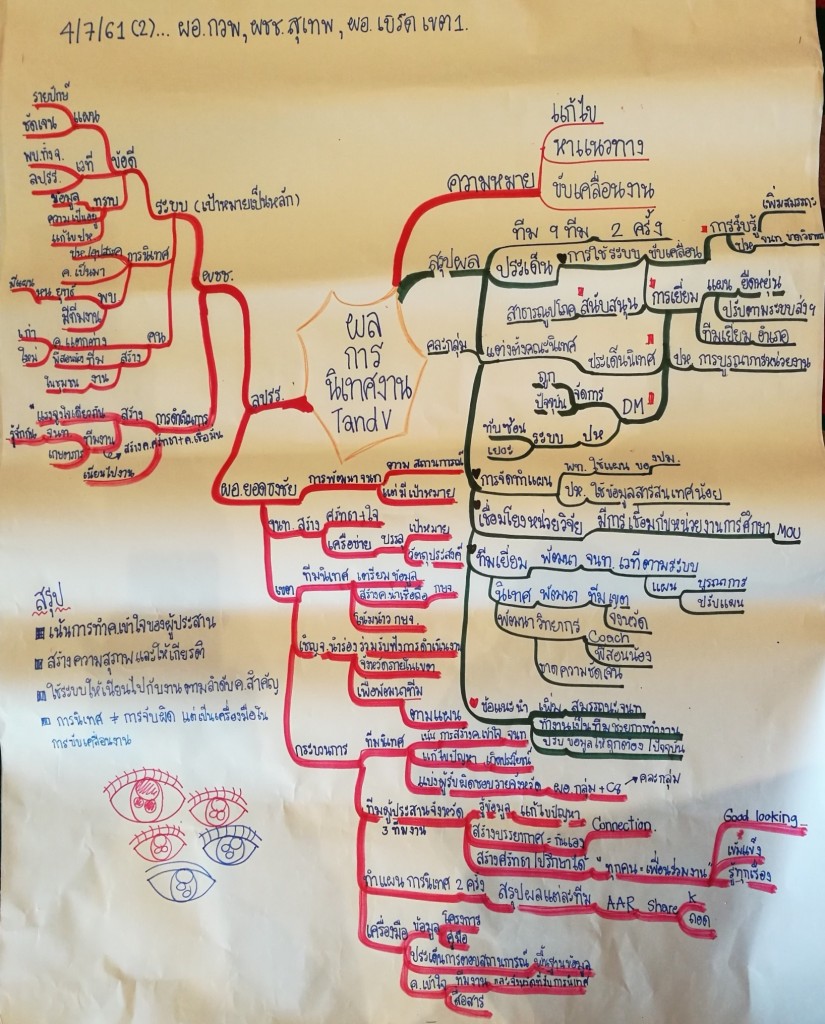 4/7/61 (2)... ผอ.กวพ, ผชช.สุเทพ, ผอ.เบิร์ด เขต 1.
ผล
การ
นิเทศงาน
Tand V
ความหมาย
แก้ไข
หาแนวทาง
ขับเคลื่อนงาน
สรุปผล
ทีม 9 ทีม 2 ครั้ง
ประเด็น
การใช้ระบบ
ขับเคลื่อน
การรับรู้
เพิ่มสมรรถนะ
ปห
การเยี่ยม
แผน ยืดหยุ่น
ปรับตามระบบส่งฯ
ทีมเยี่ยม อำเภอ
ปห. การบูรณาการหน่วยงาน
สาธารณูปโภค สนับสนุน
คละกลุ่ม
แต่งตั้งคณะนิเทศ
ประเด็นนิเทศ
DM
จัดการ
ถูก
ปัจจุบัน
ปห
ระบบ
ทับซ้อน
เยอะ
การจัดทำแผน
พท. ใช้แผน ของปม.
ปห. ใช้ข้อมูลสารสนเทศน้อย
เชื่อมโยงหน่วยวิจัย
มีการเชื่อมกับหน่วยงานการศึกษา MOU
ทีมเยี่ยม พัฒนา จนท. เวทีตามระบบ
แผน
บูรณาการ
ปรับแผน
นิเทศ พัฒนา ทีม เขต
จังหวัด
พัฒนาวิทยากร Coach
พี่สอนน้อง
ขาดความชัดเจน
ข้อแนะนำ
เพิ่ม สมรรถนะ จนท.
ทำงานเป็นทีม ระยะการทำงาน
ปรับ ข้อมูลให้ถูกต้อง ปัจจุบัน
ลปรร.
ผชช.
ระบบ (เป้าหมายเป็นหลัก)
ข้อดี
แผน
รายปักษ์
ชัดเจน
เวที
พบ.ทั้ง จ.
ลปรร.
ทราบ
ข้อมูล
ความเป็นอยู่
แก้ไข ปห
การนิเทศ
ปห./อุปสรรค
ค.เป็นมา
พบ
ยุทธ์
มีทีมงาน
คน
ค.แตกต่าง
เก่า
ใหม่
สร้าง
ทีม
พี่สอนน้อง
งาน
ในชุมชน
การดำเนินการ
สร้าง
แรงจูงใจเดียวกัน
ทีมงาน
รู้จักกัน
จนท.
เกษตรกร
สร้าง ค.ศรัทธา+ค.เชื่อมั่น
เนียนไปงาน
ผอ.ยอดธงชัย
การพัฒนา จนท
ตาม สถานการณ์
แต่มีเป้าหมาย
จนท. สร้าง
ศรัทธา+ใจ
เครือข่าย บรรลุ
เป้าหมาย
วัตถุประสงค์
เขต
ทีมนิเทศ
เตรียมข้อมูล
สร้าง ค.น่าเชื่อถือ กษจ.
โน้มน้าว กษจ.
เชิญ จ. นำร่อง
ร่วมรับฟังการดำเนินงาน
จังหวัดภายในเขต
เพื่อพัฒนาทีม
ตามแผน
กระบวนการ
ทีมนิเทศ
เน้น กระสร้าง ค.เข้าใจ จนท
แก้ไขปัญหา เกิดประโยชน์
แบ่งผู้รับผิดชอบรายจังหวัด
ผอ.กลุ่ม + C8
คละกลุ่ม
ทีมผู้ประสานจังหวัด
3 ทีมงาน
รู้ข้อมูล แก้ไขปัญหา
สร้างบรรยากาศ = กันเอง
Connection
สร้างศรัทธา / ปรึกษาได้
"ทุกคน = เพื่อนร่วมงาน"
Good looking
เข้มแข็ง
รู้ทุกเรื่อง
ทำแผน การนิเทศ 2 ครั้ง
สรุปผลแต่ละทีม
AAR Share
K
ถอด
เครื่องมือ
ข้อมูล
โครงการ
คู่มือ
ประเด็นการตอบสถานการณ์
พื้นฐานข้อมูล
ค.เข้าใจ
ทีมงาน และจังหวัดที่รับการนิเทศ
สื่อสาร
สรุป
เน้นการทำ ค.เข้าใจของผู้ประสาน
สร้างความสุภาพและให้เกียรติ
ใช้ระบบให้เนียนไปกับงาน ตามลำดับ ค.สำคัญ
การนิเทศ ≠ การจับผิด แต่เป็นเครื่องมือใน
การขับเคลื่อนงาน